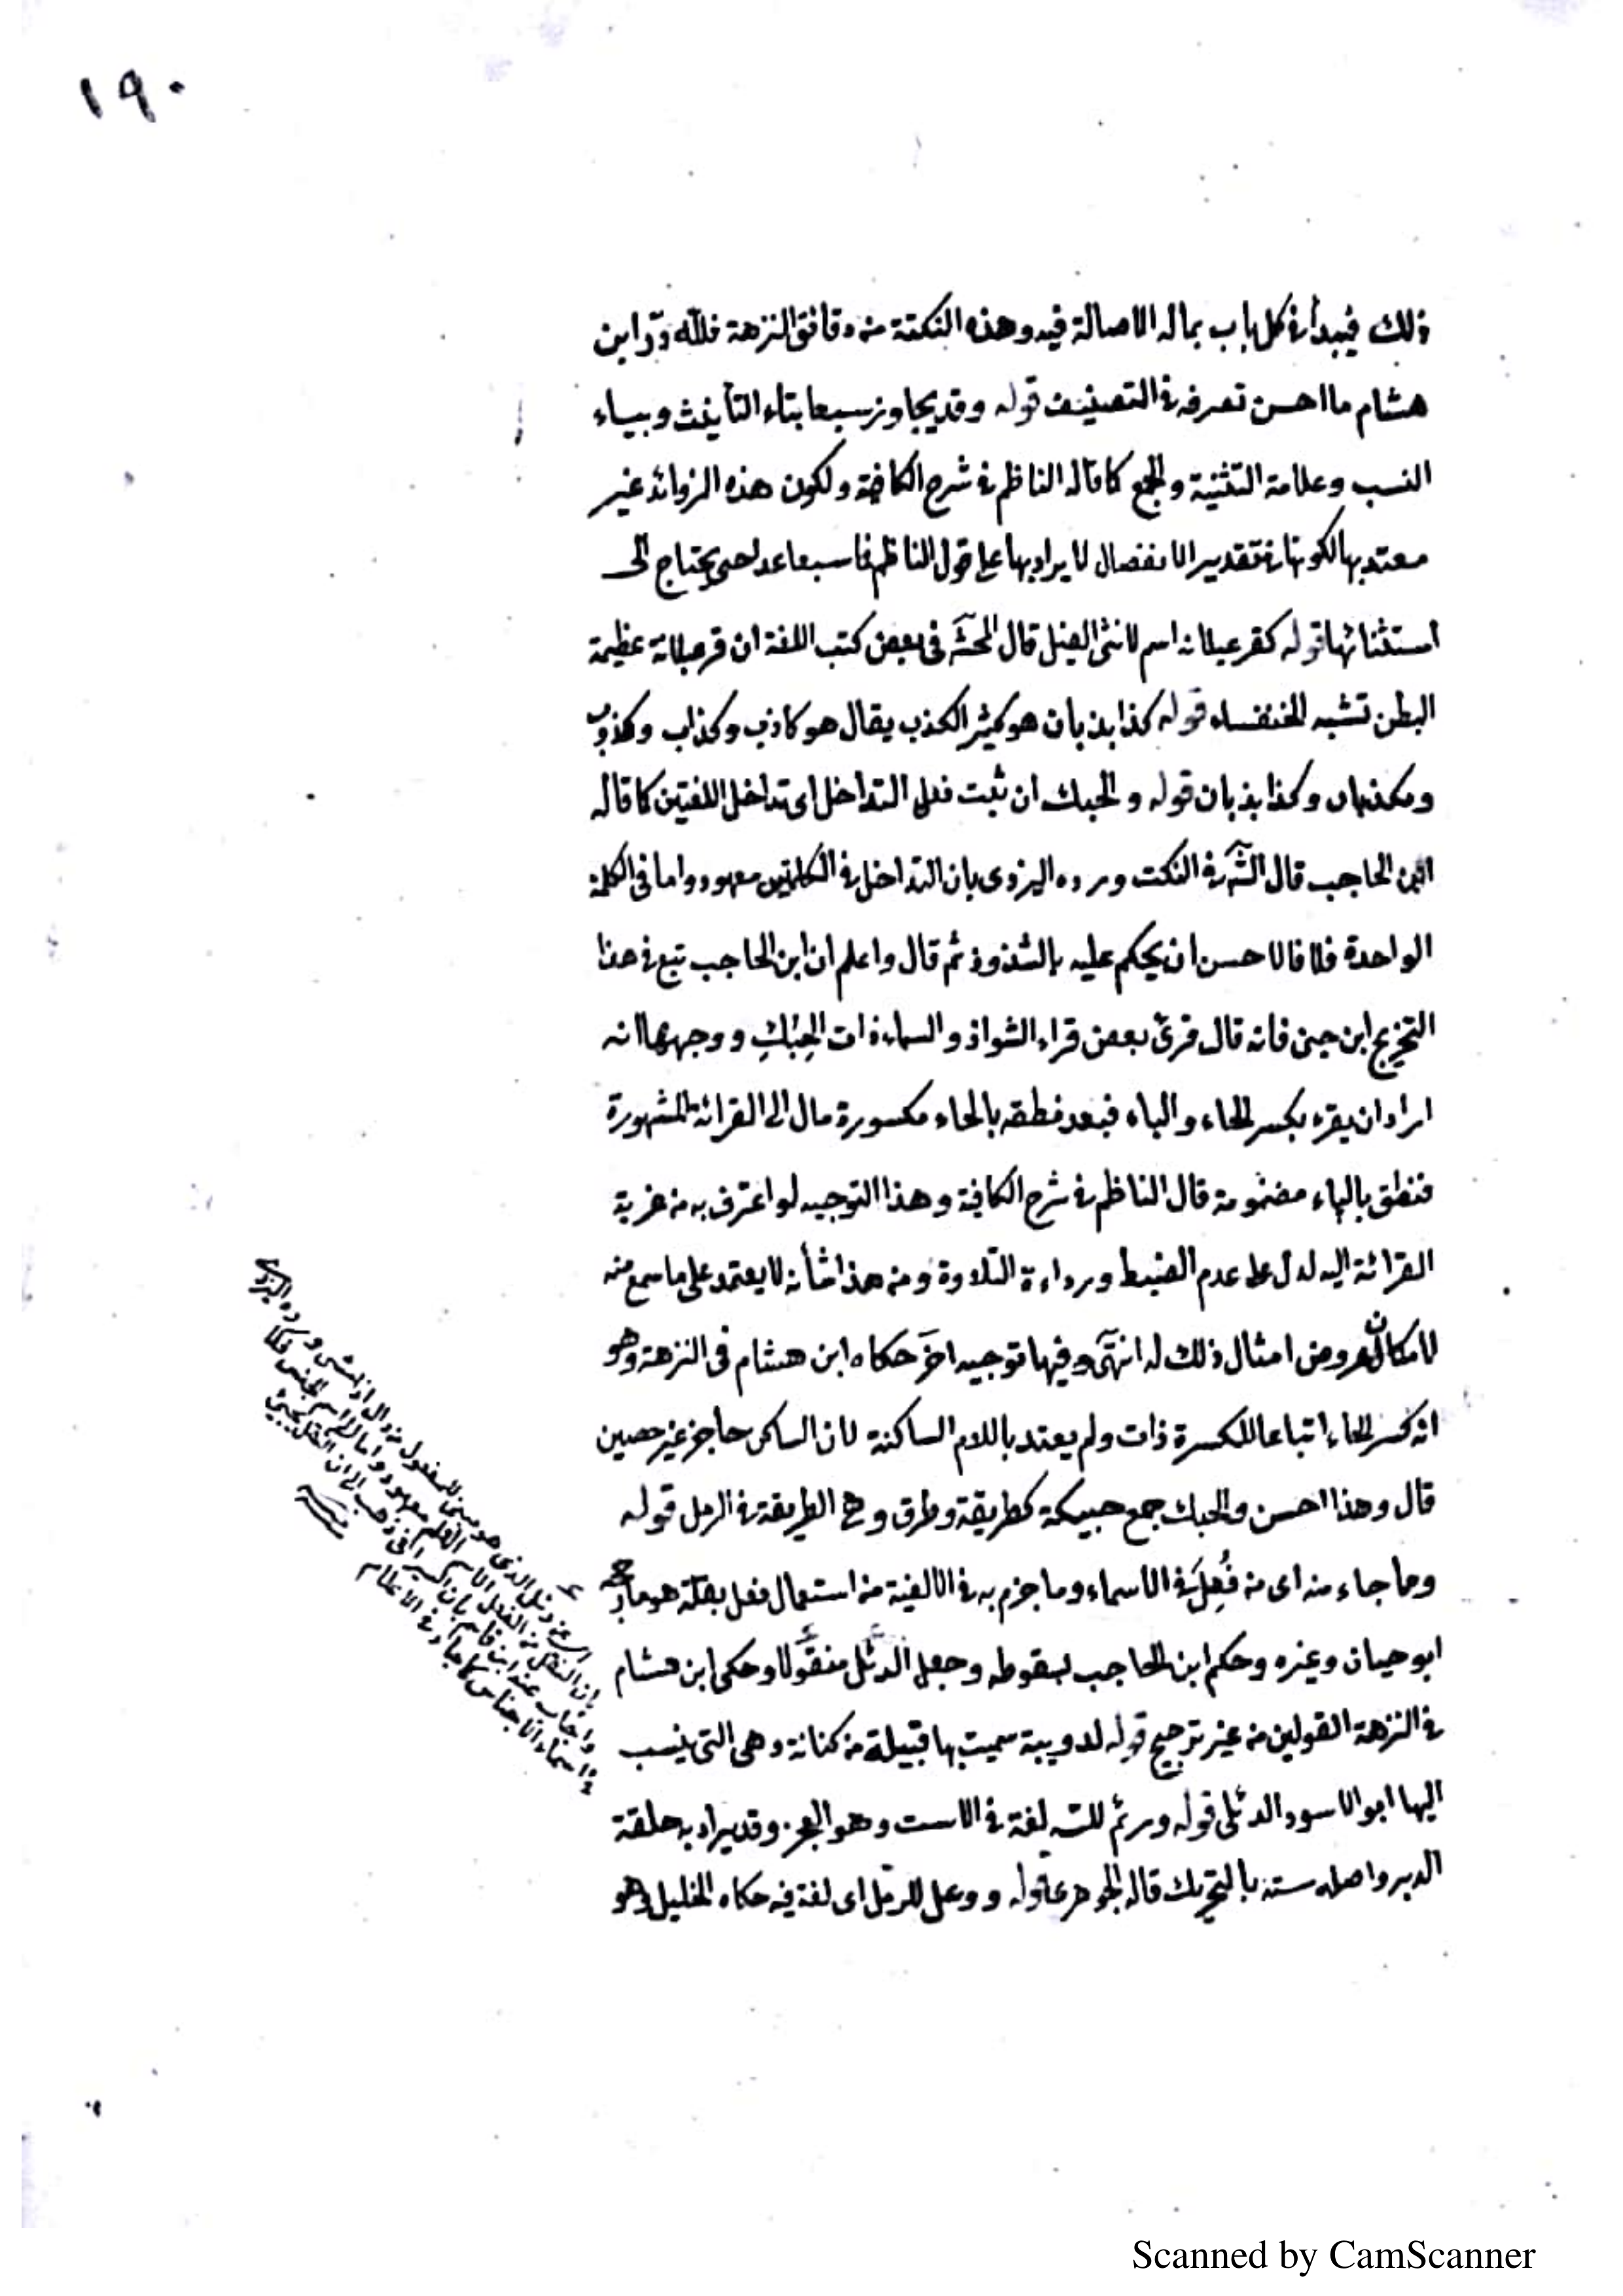 ١٩٠
ذلك فيبدأ في كل باب بما له الاصالة فيه وهذه النكتة من دقائق النزهة فلله درّ ابن
هشام ما احسن تصرفه في التصنيف قوله وقد يجاوز سبعا بتاء التأنيث وبياء
النسب وعلامة التثنية والجمع كما قاله الناظم في شرح الكافية ولكون هذه الزوائد غير
معتد بها لكونها في تقدير الانفصال لا يراد بها على قول الناظم فما سبعا عدا حتى يحتاج الى
استثنائها قوله كقرعبلانه اسم لانثى الفيل قال المحشى فى بعض كتب اللغة ان قرعبلانة عظيمة
البطن تشبه الخنفساء قوله كذابذبان هو كثير الكذب يقال هو كاذب وكذاب وكذوب
ومكذبان وكذابذبان قوله والحبك ان ثبت فعلى التداخل اى تداخل اللغتين كما قاله
ابن الحاجب قال الش في النكت ورده اليزدى بان التداخل في الكلمتين معهود واما فى الكلمة
الواحدة فلا فالاحسن ان يحكم عليه بالشذوذ ثم قال واعلم ان ابن الحاجب تبع في هذا
التخريج ابن جنى فانه قال قرئ بعض قراء الشواذ والسماء ذات الحِبُكِ ووجهها انه
اراد ان يقرء بكسر الحاء والباء فبعد نطقه بالحاء مكسورة مال الى القرائة المشهورة
فنطق بالباء مضمومة قال الناظم في شرح الكافية وهذا التوجيه لو اعترف به من عزيت
القرائة اليه لدل على عدم الضبط ورداءة التلاوة ومن هذا شأنه لا يعتمد على ما سمع منه
لامكان عروض امثال ذلك له انتهى وفيها توجيه اخر حكاه ابن هشام فى النزهة وهو
انه كسر الحاء اتباعا لكسرة ذات ولم يعتد باللام الساكنة لان الساكن حاجز غير حصين
قال وهذا احسن والحبك جمع حبيكة كطريقة وطرق وهى الطريقة في الرمل قوله
وما جاء منه اى من فُعِلَ في الاسماء وما جزم به في الالفية من استعمال فعل بقلة هو ما رجحه
ابو حيان وغيره وحكم ابن الحاجب بسقوطه وجعل الدئل منقولا وحكى ابن هشام
في النزهة القولين من غير ترجيح قوله لدويبة سميت بها قبيلة من كنانة وهى التى ينسب
اليها ابو الاسود الدئلى قوله ورئم للسه لغة في الاست وهو العجز وقد يراد به حلقة
الدبر واصله سته بالتحريك قاله الجوهرى قوله ووعل للوعل اى لغة فيه حكاه الخليل وهو
دئل الذى هو مبنى للمفعول من دأل اذا مشى ورده اليزدى
بان النقل من الفعل الى اسم العلم معهود واما الى اسم الجنس فلا
واجاب عنه ابن قاسم بان السيرافى ذهب الى ان النقل يجئ
في اسماء الاجناس كما جاء في الاعلام
Scanned by CamScanner